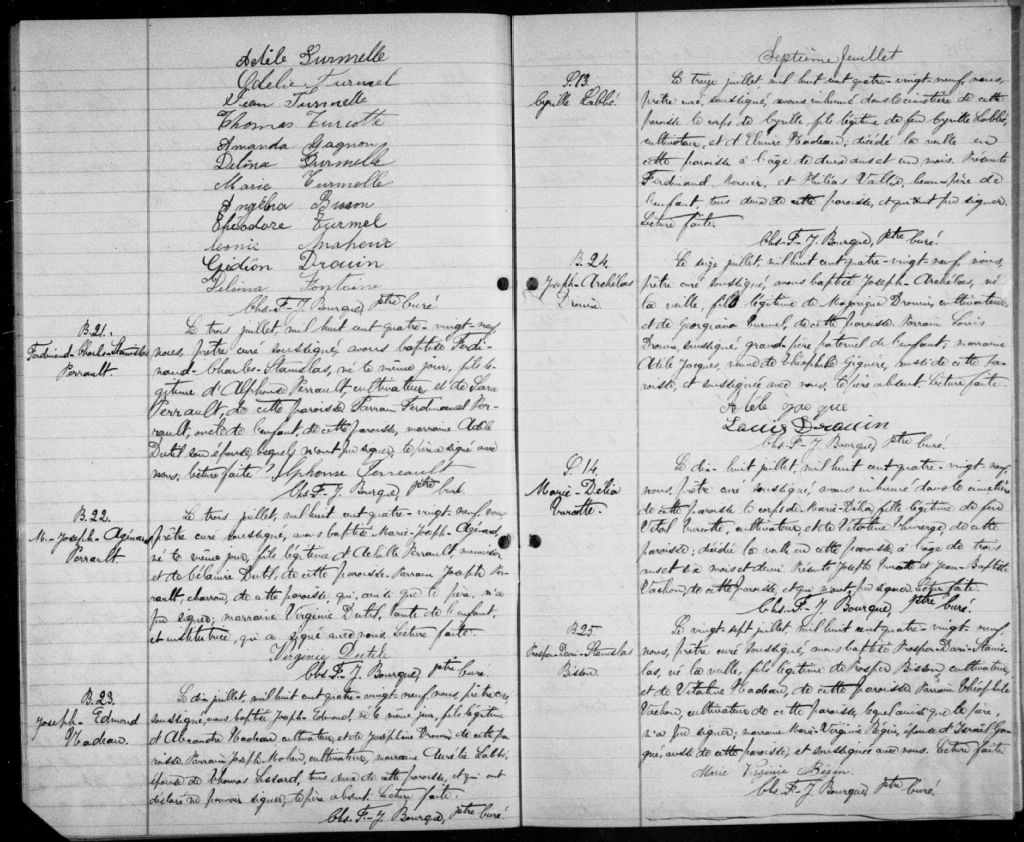 Adèle Turmelle
Odelie Turmel
Jean Turmelle
Thomas Turcotte
Amanda Gagnon
Delina Turmelle
Marie Turmelle
Angelina Bisson
Théodore Turmel
Gédéon Drouin
Delvina Fontaine
Chs-F-J Bourque, ptre curé
B.21.
Ferdinand-Charles-Stanislas
Perrault
Le trois juillet, mil huit cent quatre-vingt-neuf,
nous, prêtre curé soussigné, avons baptisé Ferdi-
nand-Charles-Stanislas, né le même jour, fils lé-
gitime d'Alphonse Perrault, cultivateur, et de Sara
Perrault, de cette paroisse. Parrain Ferdinand Per-
rault, oncle de l'enfant, de cette paroisse, marraine Adèle
Dutil son épouse, lesquels n'ont pu signer, le père a signé avec
nous. Lecture faite. Alphonse Perreault
Chs-F-J. Bourque, ptre curé.
B.22.
M.-Joseph-Agénard
Perrault.
Le trois juillet, mil huit cent quatre-vingt-neuf, nous,
prêtre curé soussigné, avons baptisé Marie-Joseph-Agénard,
né le même jour, fils légitime d'Achille Perrault, menuisier
et de Célanire Dutil, de cette paroisse. Parrain Joseph Per-
rault, charron, de cette paroisse, qui, ainsi que le père, n'a
pu signer; marraine Virginie Dutil, tante de l'enfant,
et institutrice, qui a signé avec nous. Lecture faite.
Virginie Dutil
Chs-F-J. Bourque, ptre curé.
B.23.
Joseph-Edmond
Nadeau.
Le dix juillet, mil huit cent quatre-vingt-neuf, nous, prêtre curé,
soussigné, avons baptisé Joseph-Edmond, né le même jour, fils légitime
d'Alexandre Nadeau cultivateur, et de Joséphine Drouin, de cette pa-
roisse. Parrain Joseph Nolin, cultivateur, marraine Aurélie Labbé,
épouse de Thomas Lessard, tous deux de cette paroisse, et qui ont
déclaré ne pouvoir signer, le père absent. Lecture faite.
Chs-F-J Bourque, ptre curé
Septième feuillet
S.13.
Cyrille Labbé.
Le treize juillet mil huit cent quatre-vingt-neuf, nous,
prêtre curé, soussigné, avons inhumé dans le cimetière de cette
paroisse le corps de Cyrille, fils légitime de feu Cyrille Labbé,
cultivateur, et d'Elmire Nadeau; décédé la veille en
cette paroisse à l'âge de deux ans et un mois. Présents
Ferdinand Mercier, et Philias Vallée, beau-père de
l'enfant, tous deux de cette paroisse, et qui n'ont pu signer.
Lecture faite.
Chs-F-J. Bourque, ptre curé.
B.24.
Joseph-Archélas
Drouin
Le seize juillet, mil huit cent quatre-vingt-neuf, nous,
prêtre curé soussigné, avons baptisé Joseph-Archélas, né
la veille, fils légitime de Drouin, cultivateur,
et de Georgiana Turmel, de cette paroisse. Parrain Louis
Drouin, soussigné grand-père paternel de l'enfant, marraine
Adèle Jacques, veuve de Théophile Giguère, aussi de cette pa-
roisse, et soussignée avec nous, le père absent. Lecture faite.
Adèle Jacque
Louis Drouin
Chs-F-J. Bourque, ptre curé.
S.14.
Marie-Delia
Turcotte.
Le dix-huit juillet, mil huit cent quatre-vingt-neuf,
nous, prêtre curé soussigné, avons inhumé dans le cimetière
de cette paroisse le corps de Marie-Délia, fille légitime de feu
Vital Turcotte, cultivateur, et de Vitaline Thivierge, de cette
paroisse; décédée la veille en cette paroisse, à l'âge de trois
ans et six mois et demi. Présents Joseph Turcotte et Jean-Baptiste
Vachon, de cette paroisse, et qui n'ont pu signer. Lecture faite.
Chs-F-J Bourque, ptre curé.
B.25
Prosper-Darie-Stanislas
Bisson.
Le vingt-sept juillet, mil huit cent quatre-vingt-neuf,
nous, prêtre curé soussigné, avons baptisé Prosper-Darie-Stanis-
las, né la veille, fils légitime de Prosper Bisson, cultivateur,
et de Vitaline Nadeau, de cette paroisse. Parrain Théophile
Vachon, cultivateur de cette paroisse, lequel ainsi que le père,
n'a pu signer; marraine Marie-Virginie Bégin, épouse d'Israël Ga-
gné, aussi de cette paroisse, et soussignée avec nous. Lecture faite
Marie Virginie Bégin.
Chs-F-J. Bourque, ptre curé.